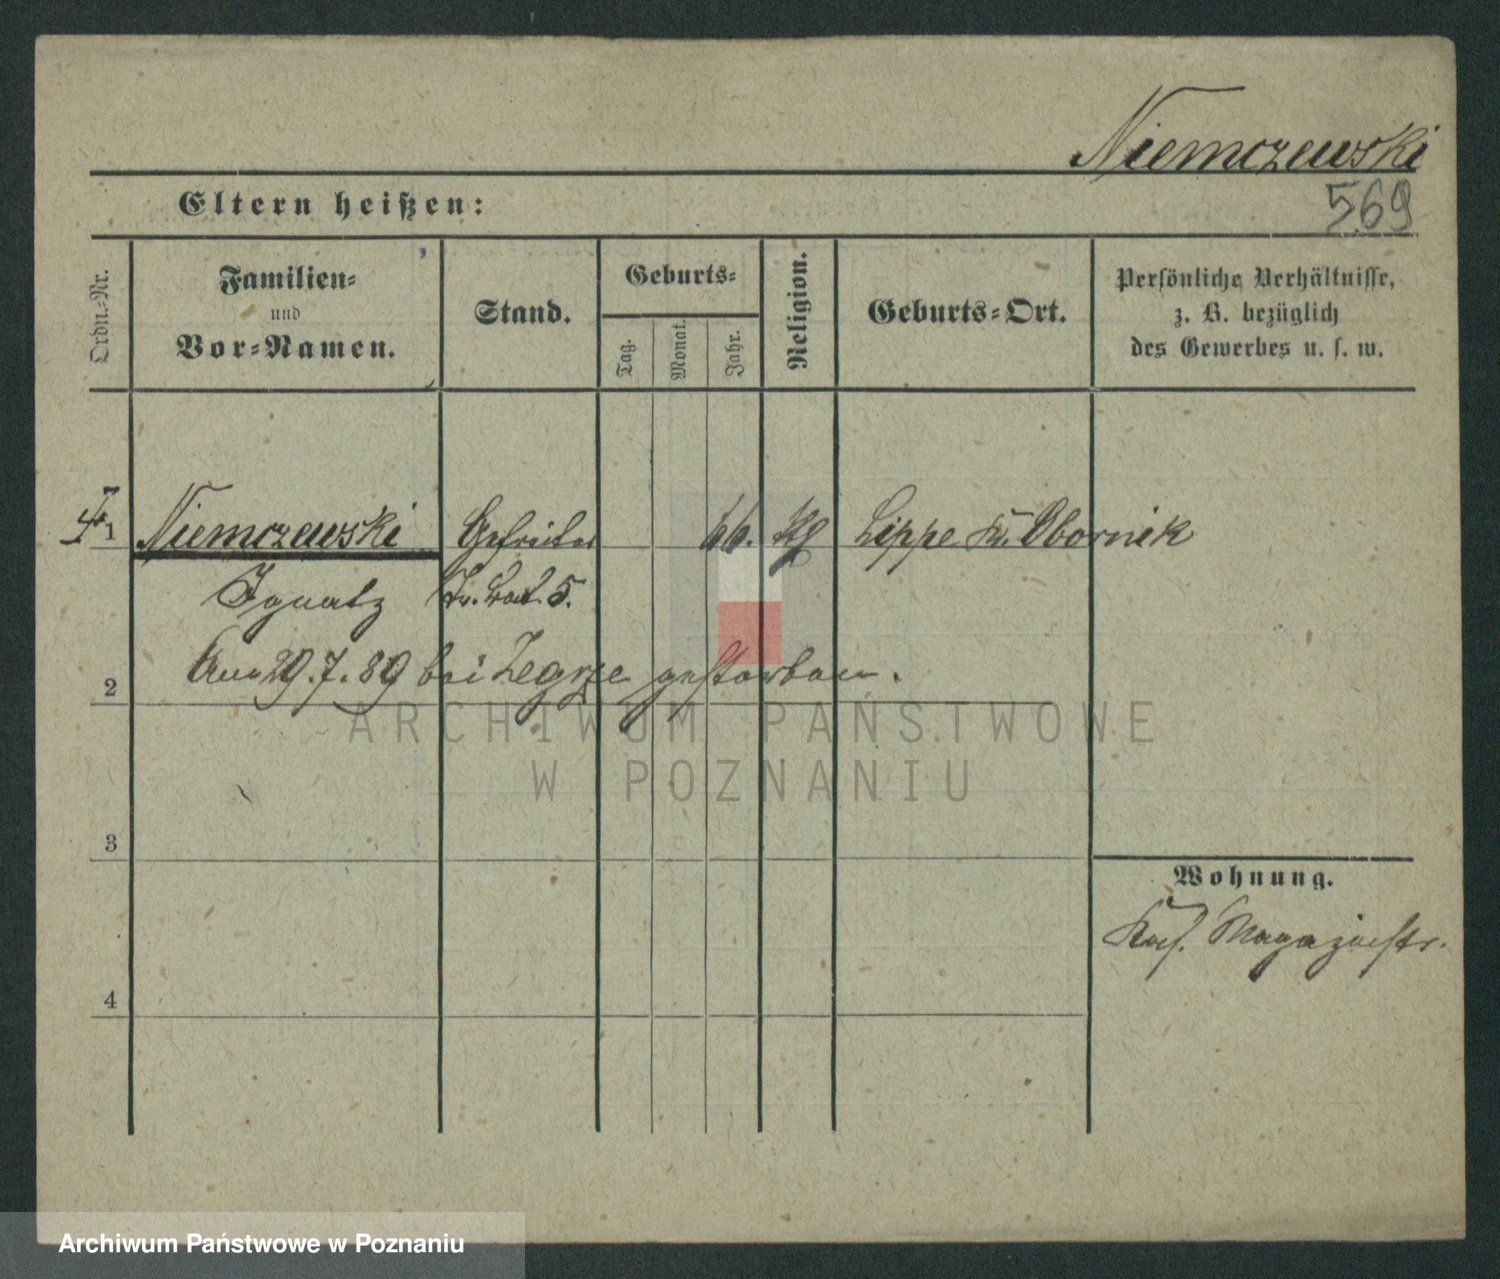 Niemczewski
Eltern heißen:
569
Ordn.-Nr.
Familien-
und
Vor-Namen.
Stand.
Geburts-
Tag.
Monat.
Jahr.
Religion.
Geburts-Ort.
Persönliche Verhältnisse,
z. B. bezüglich
des Gewerbes u. s. w.
1 Niemczewski Gefreiter 66. Kg Lippe Kr. Obornik
Ignatz Tr. Bat. 5.
Am 29.7.89 bei Zegrze gestorben.
2
ARCHIWUM PAŃSTWOWE
W POZNANIU
3
Wohnung.
Kas. Magazinstr.
4
Archiwum Państwowe w Poznaniu